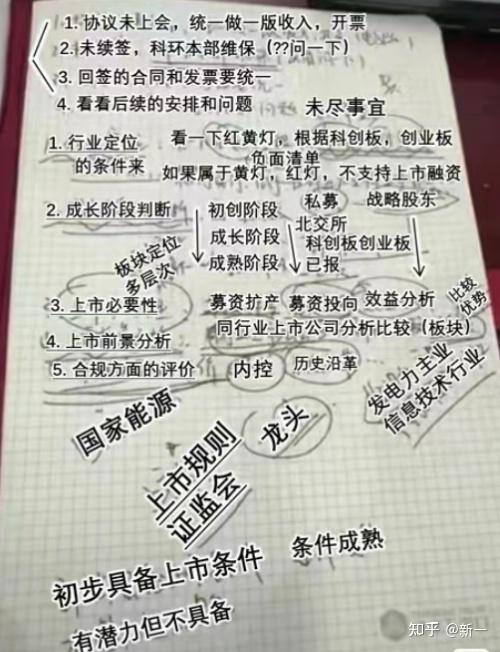 1. 协议未上会，统一做一版收入，开票
2.未续签，科环本部维保（??问一下）
3. 回签的合同和发票要统一
4. 看看后续的安排和问题
未尽事宜
1. 行业定位的条件来
看一下红黄灯，根据科创板，创业板
负面清单
如果属于黄灯，红灯，不支持上市融资
2. 成长阶段判断
初创阶段
私募
战略股东
成长阶段
北交所
科创板创业板
成熟阶段
已报
板块定位
多层次
3. 上市必要性
募资扩产
募资投向
效益分析
比较
优势
同行业上市公司分析比较（板块）
4. 上市前景分析
5. 合规方面的评价
内控
历史沿革
发电力主业
信息技术行业
国家能源
上市规则
证监会
龙头
初步具备上市条件
条件成熟
有潜力但不具备
知乎 @新一